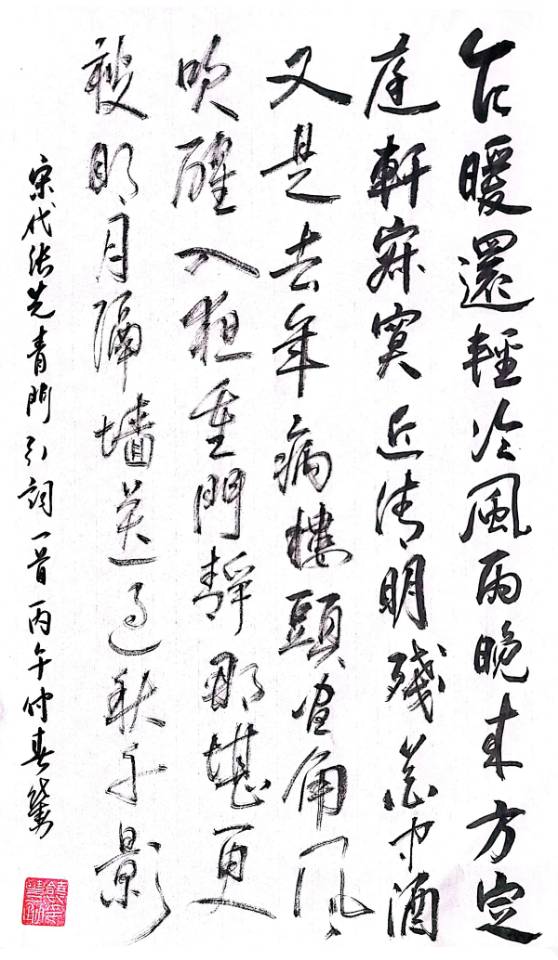 乍暖還輕冷風雨晚来方定
庭軒寂寞近清明殘花中酒
又是去年病樓頭畫角風
吹醒入夜重門靜那堪更
被明月隔墙送过秋千影
宋代张先青門引詞一首丙午仲春